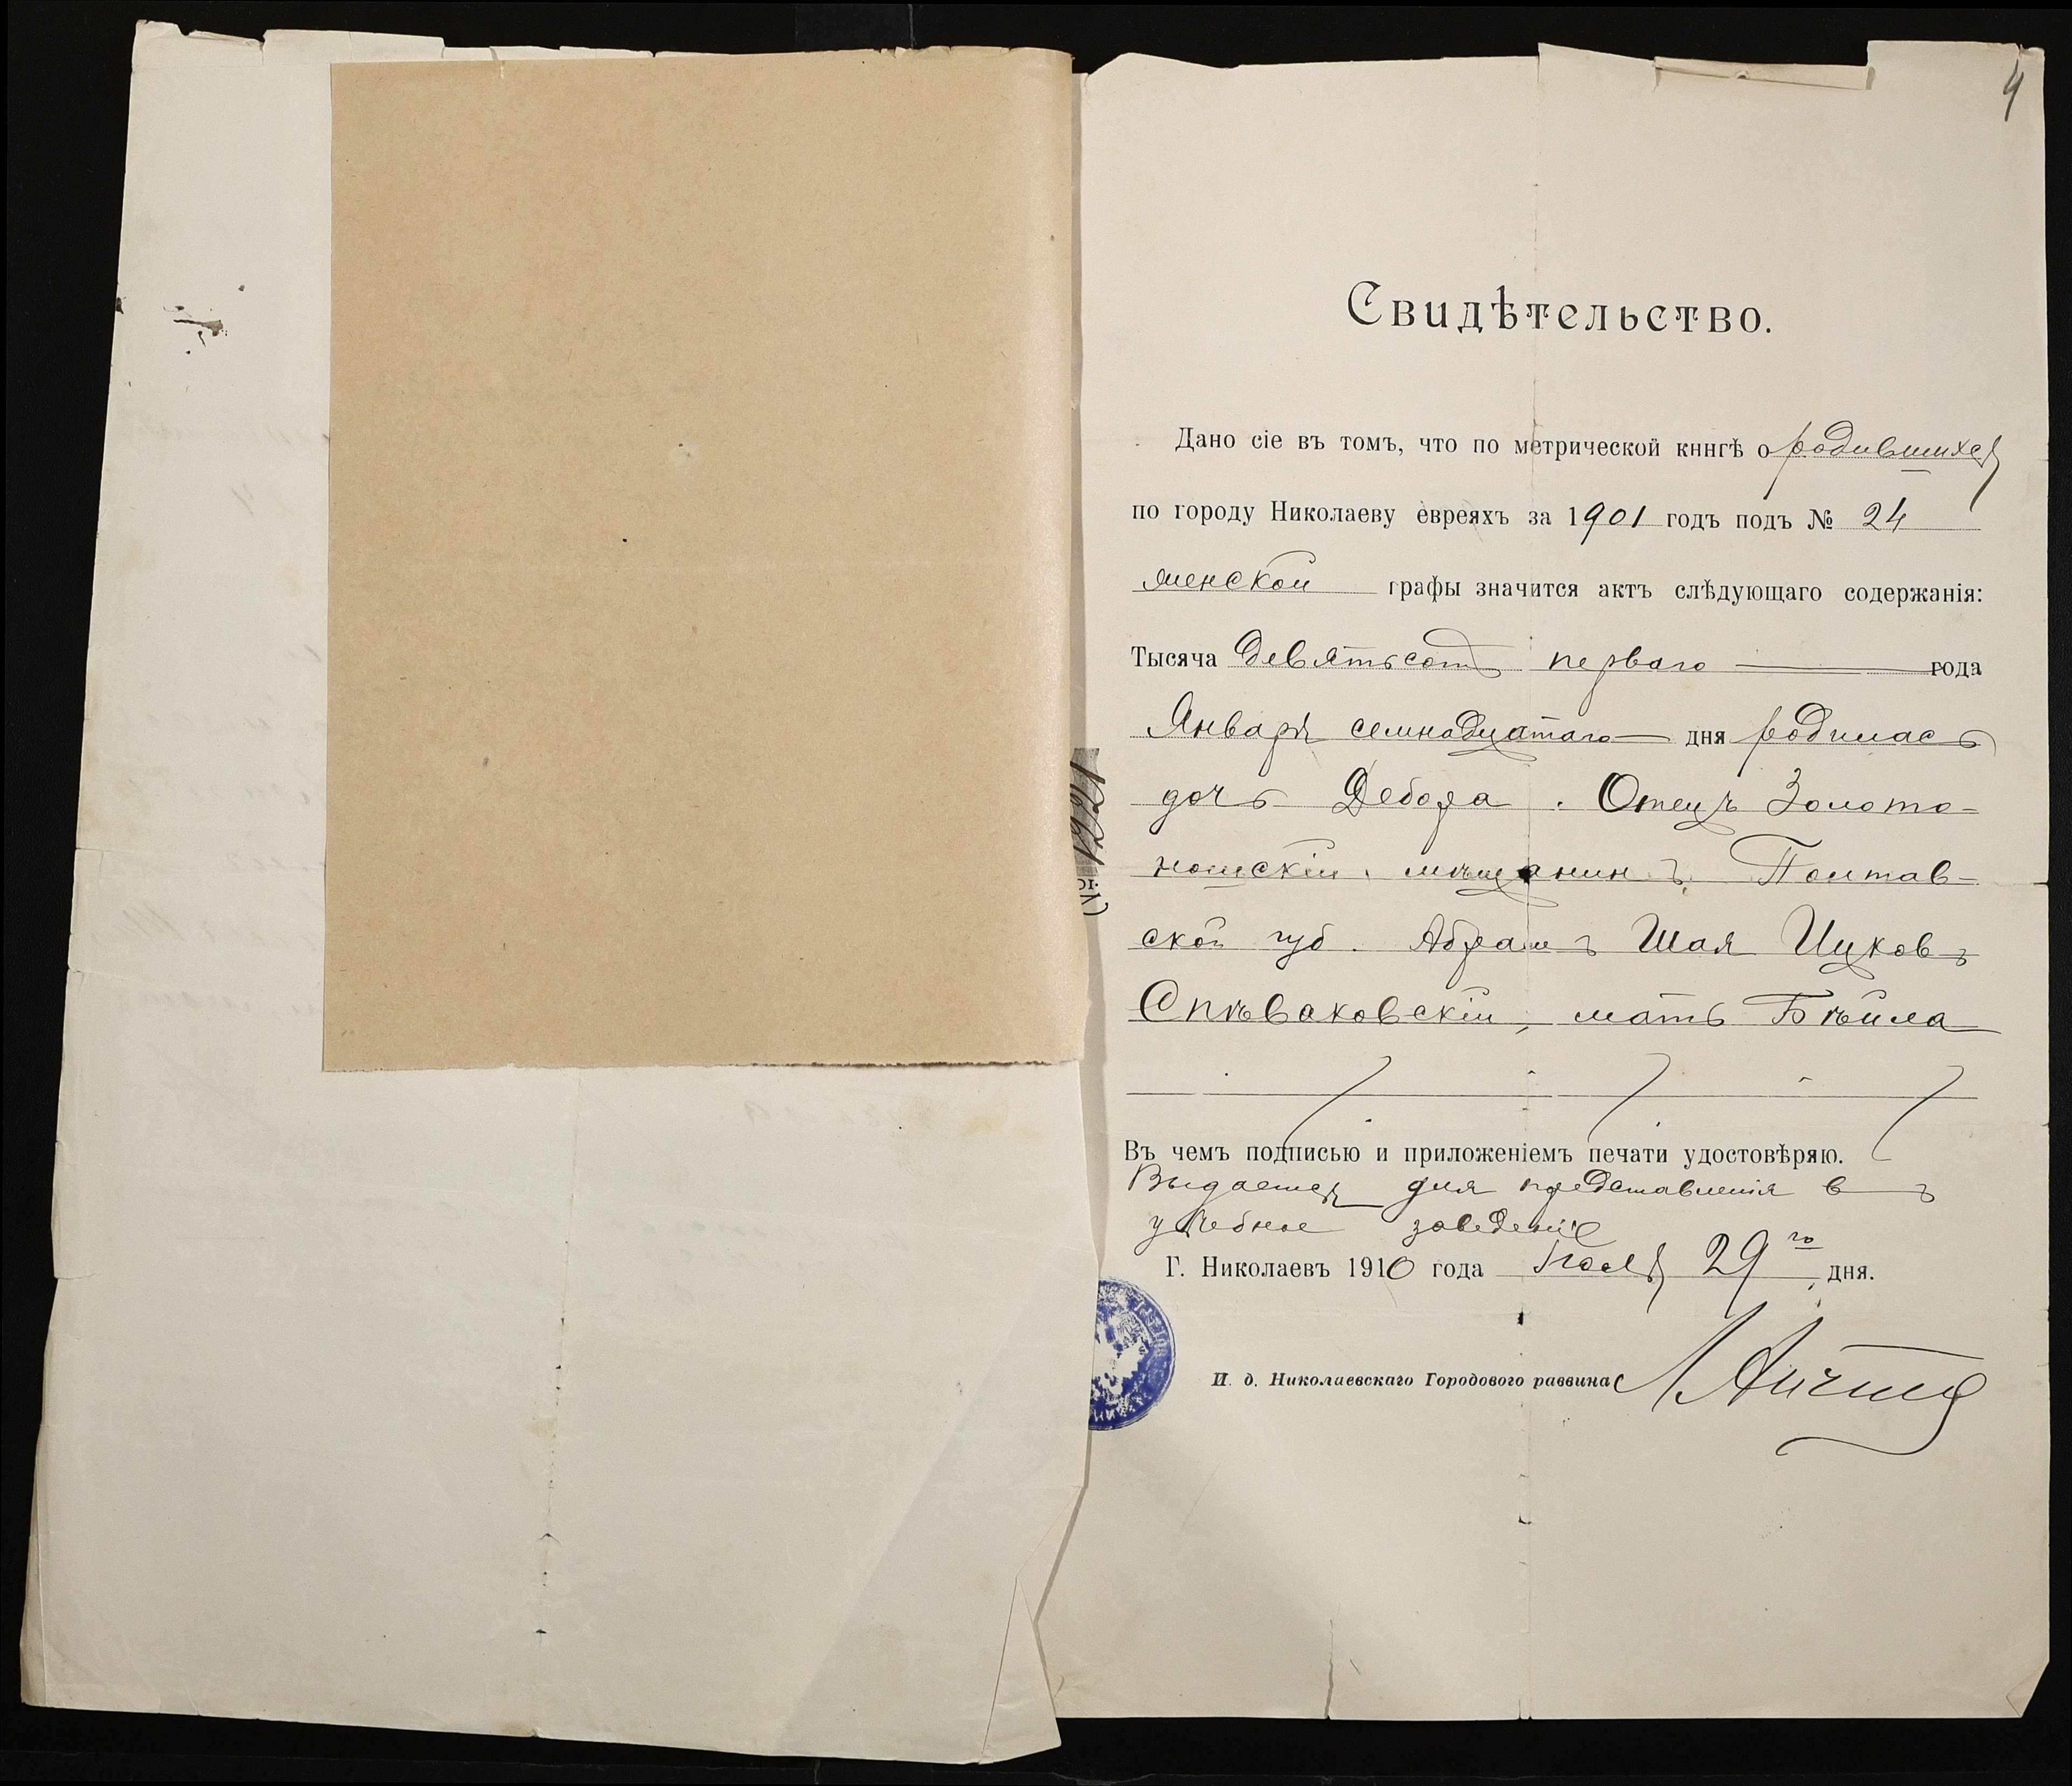 4
Свидѣтельство.
Дано сіе въ томъ, что по метрической кннгѣ о родившихся
по городу Николаеву евреяхъ за 1901 годъ подъ № 24
женской графы значится актъ слѣдующаго содержанія:
Тысяча девятьсотъ перваго года
Января семнадцатаго дня родилась
дочь Дебора. Отецъ Золото-
ношскій мѣщанинъ Полтав-
ской губ. Абрамъ Шая Ицковъ
Спѣваковскій, мать Бѣйла
Въ чемъ подписью и приложеніемъ печати удостовѣряю.
Выдается для представленія въ
учебное заведеніе
Г. Николаевъ 1910 года Іюля 29го дня.
И. д. Николаевскаго Городового раввина